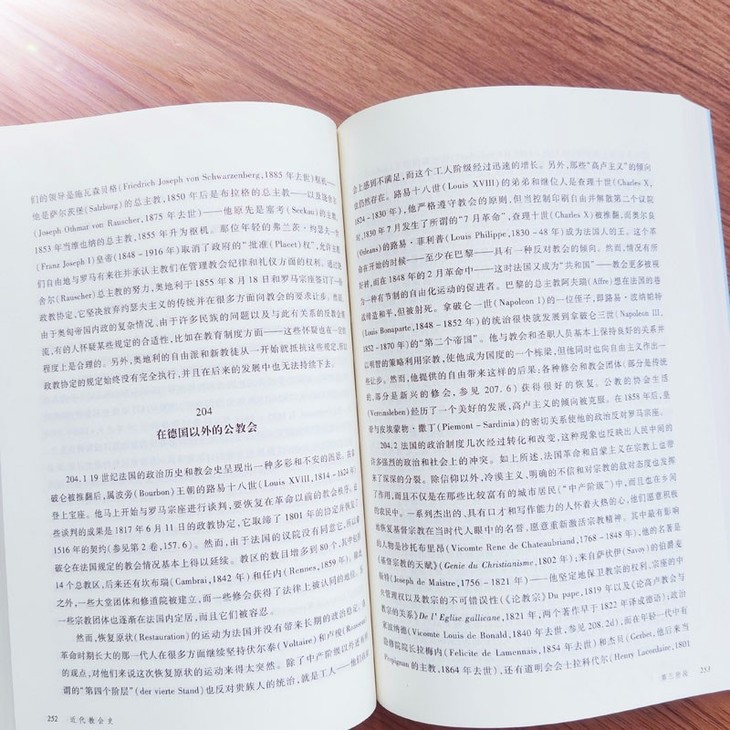 们的领导是施瓦森贝格(Friedrich Joseph von Schwarzenberg, 1885年去世)枢机——
他是萨尔茨堡(Salzburg)的总主教,1850年后是布拉格的总主教——以及
(Joseph Othmar von Rauscher, 1875年去世)——他原先是塞考(Seckau)的主教,
1853年当维也纳的总主教,1855年升为枢机。那位年轻的弗兰茨·约瑟夫一
(Franz Joseph I)皇帝(1848-1916年)取消了政府的“批准(Placet)权”,允许主教
们自由地与罗马有来往并承认主教们在管理教会纪律和礼仪方面的权利。通过
舍尔(Rauscher)总主教的努力,奥地利于1855年8月18日和罗马宗座签订了一
政教协定,它坚决放弃约瑟夫主义的传统并在很多方面向教会的要求让步。然而,
由于奥匈帝国内政的复杂情况,由于许多民族的问题以及与此有关系的反教会
流,有的人怀疑某些规定的合适性,比如在教育制度方面——这些怀疑在一定
程度上是合理的。另外,奥地利的自由派和新教徒从一开始就抵抗这些规定,
政教协定的规定始终没有完全执行,并且在后来的发展中也无法持续下去。
204
在德国以外的公教会
204.1 19世纪法国的政治历史和教会史呈现出一种多彩和不安的面貌。在拿
破仑被推翻后,属波旁(Bourbon)王朝的路易十八世(Louis XVIII, 1814-1824年)
登上宝座。他马上开始与罗马宗座进行谈判,要恢复在革命以前的教会秩序。这
些谈判的成果是1817年6月11日的政教协定,它取缔了1801年的协定并恢复了
1516年的契约(参见第2卷,157.6)。然而,由于法国的议院没有同意它,所以拿
破仑在法国规定的教会情况基本上得以延续。教区的数目增多到80个,其中包括
14个总教区,后来还有坎布瑞(Cambrai, 1842年)和任内(Rennes, 1859年)。除此
之外,一些大堂团体和修道院被建立,而一些修会获得了法律上被认同的地位,另
一些宗教团体也逐渐在法国内定居,而且它们被容忍。
然而,恢复原状(Restauration)的运动为法国并没有带来长期的政治稳定。在
革命时期长大的那一代人在很多方面继续坚持伏尔泰(Voltaire)和卢梭(Rousseau)
的观点,对他们来说这次恢复原状的运动来得太突然。除了中产阶级以外还有所
谓的“第四个阶层”(der vierte Stand)也反对贵族人的统治,就是工人——他们在
252 近代教会史
会上感到不满足,而这个工人阶级经过迅速的增长。另外,那些“高卢主义”的倾向
也仍然存在。路易十八世(Louis XVIII)的弟弟和继位人是查理十世(Charles X,
1824-1830年),他严格遵守教会的原则,但当控制印刷自由并解散第二个议院
时,1830年7月发生了所谓的“7月革命”,查理十世(Charles X)被推翻,而奥尔良
(Orleans)的路易·菲利普(Louis Philippe, 1830-48年)成为法国人的王。这个革
命在开始的时候——至少在巴黎——具有一种反对教会的倾向。然而,情况有所
好转,而在1848年的2月革命中——这时法国又成为“共和国”——教会更多被视
为一种有节制的自由化运动的促进者。巴黎的总主教阿夫瑞(Affre)想在法国的巷
战缔造和平,但被射死。拿破仑一世(Napoleon I)的一位侄子,即路易·波纳帕特
(Louis Bonaparte, 1848-1852年)的统治很快就发展到拿破仑三世(Napoleon III,
1852-1870年)的“第二个帝国”。他与教会和圣职人员基本上保持良好的关系并
以明智的策略利用宗教,使他成为国度的一个栋梁,但他同时也向自由主义作出一
些让步。然而,他提供的自由带来这样的后果:各种修会和教会团体(部分是传统
的,部分是新兴的修会,参见207.6)获得很好的恢复。公教的协会生活
(Vereinsleben)经历了一个美好的发展,高卢主义的倾向被克服。在1858年后,皇
帝与皮埃蒙特·撒丁(Piemont-Sardinia)的密切关系使他的政治反对罗马宗座。
204.2 法国的政治制度几次经过转化和改变,这种现象也反映出人民中间的
许多强烈的政治和社会上的冲突。如上所述,法国革命和启蒙主义在宗教上也带
来了深深的分裂。除信仰以外,冷漠主义,明确的不信和对宗教的敌对态度也发挥
了作用,而且不仅是在那些比较富有的城市居民(“中产阶级”)中,而且也在乡间
的农民中。一系列杰出的、具有口才和写作能力的人怀着火热的心,他们愿意积极
地恢复基督宗教在当时代人眼中的名誉,愿意重新激活宗教精神。其中最有影响
的人物是沙托布里昂(Vicomte Rene de Chateaubriand, 1768-1848年,他的名著是
《基督宗教的天赋》(Genie du Christianisme, 1802年);来自萨伏伊(Savoy)的伯爵麦
斯特(Joseph de Maistre, 1756-1821年)——他坚定地保卫宗教的权利、宗座的中
央管理权以及教宗的不可错误性(《论教宗》Du pape, 1819年以及《论高卢教会与
教宗的关系》De l'Eglise gallicane, 1821年,两个著作早于1822年译成德语);政治
家波纳德(Vicomte Louis de Bonald, 1840年去世,参见208.2d),而在年轻一代中有
隐修院院长拉梅内(Felicite de Lamennais, 1854年去世)和杰贝(Gerbet, 他后来当
Perpignan的主教,1864年去世),还有道明会会士拉科代尔(Henry Lacordaire, 1801
第三阶段 253